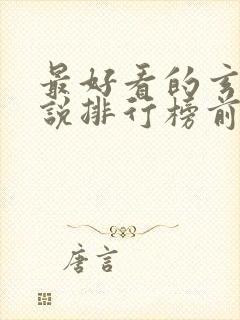 最好看的玄
说排行榜前
唐言